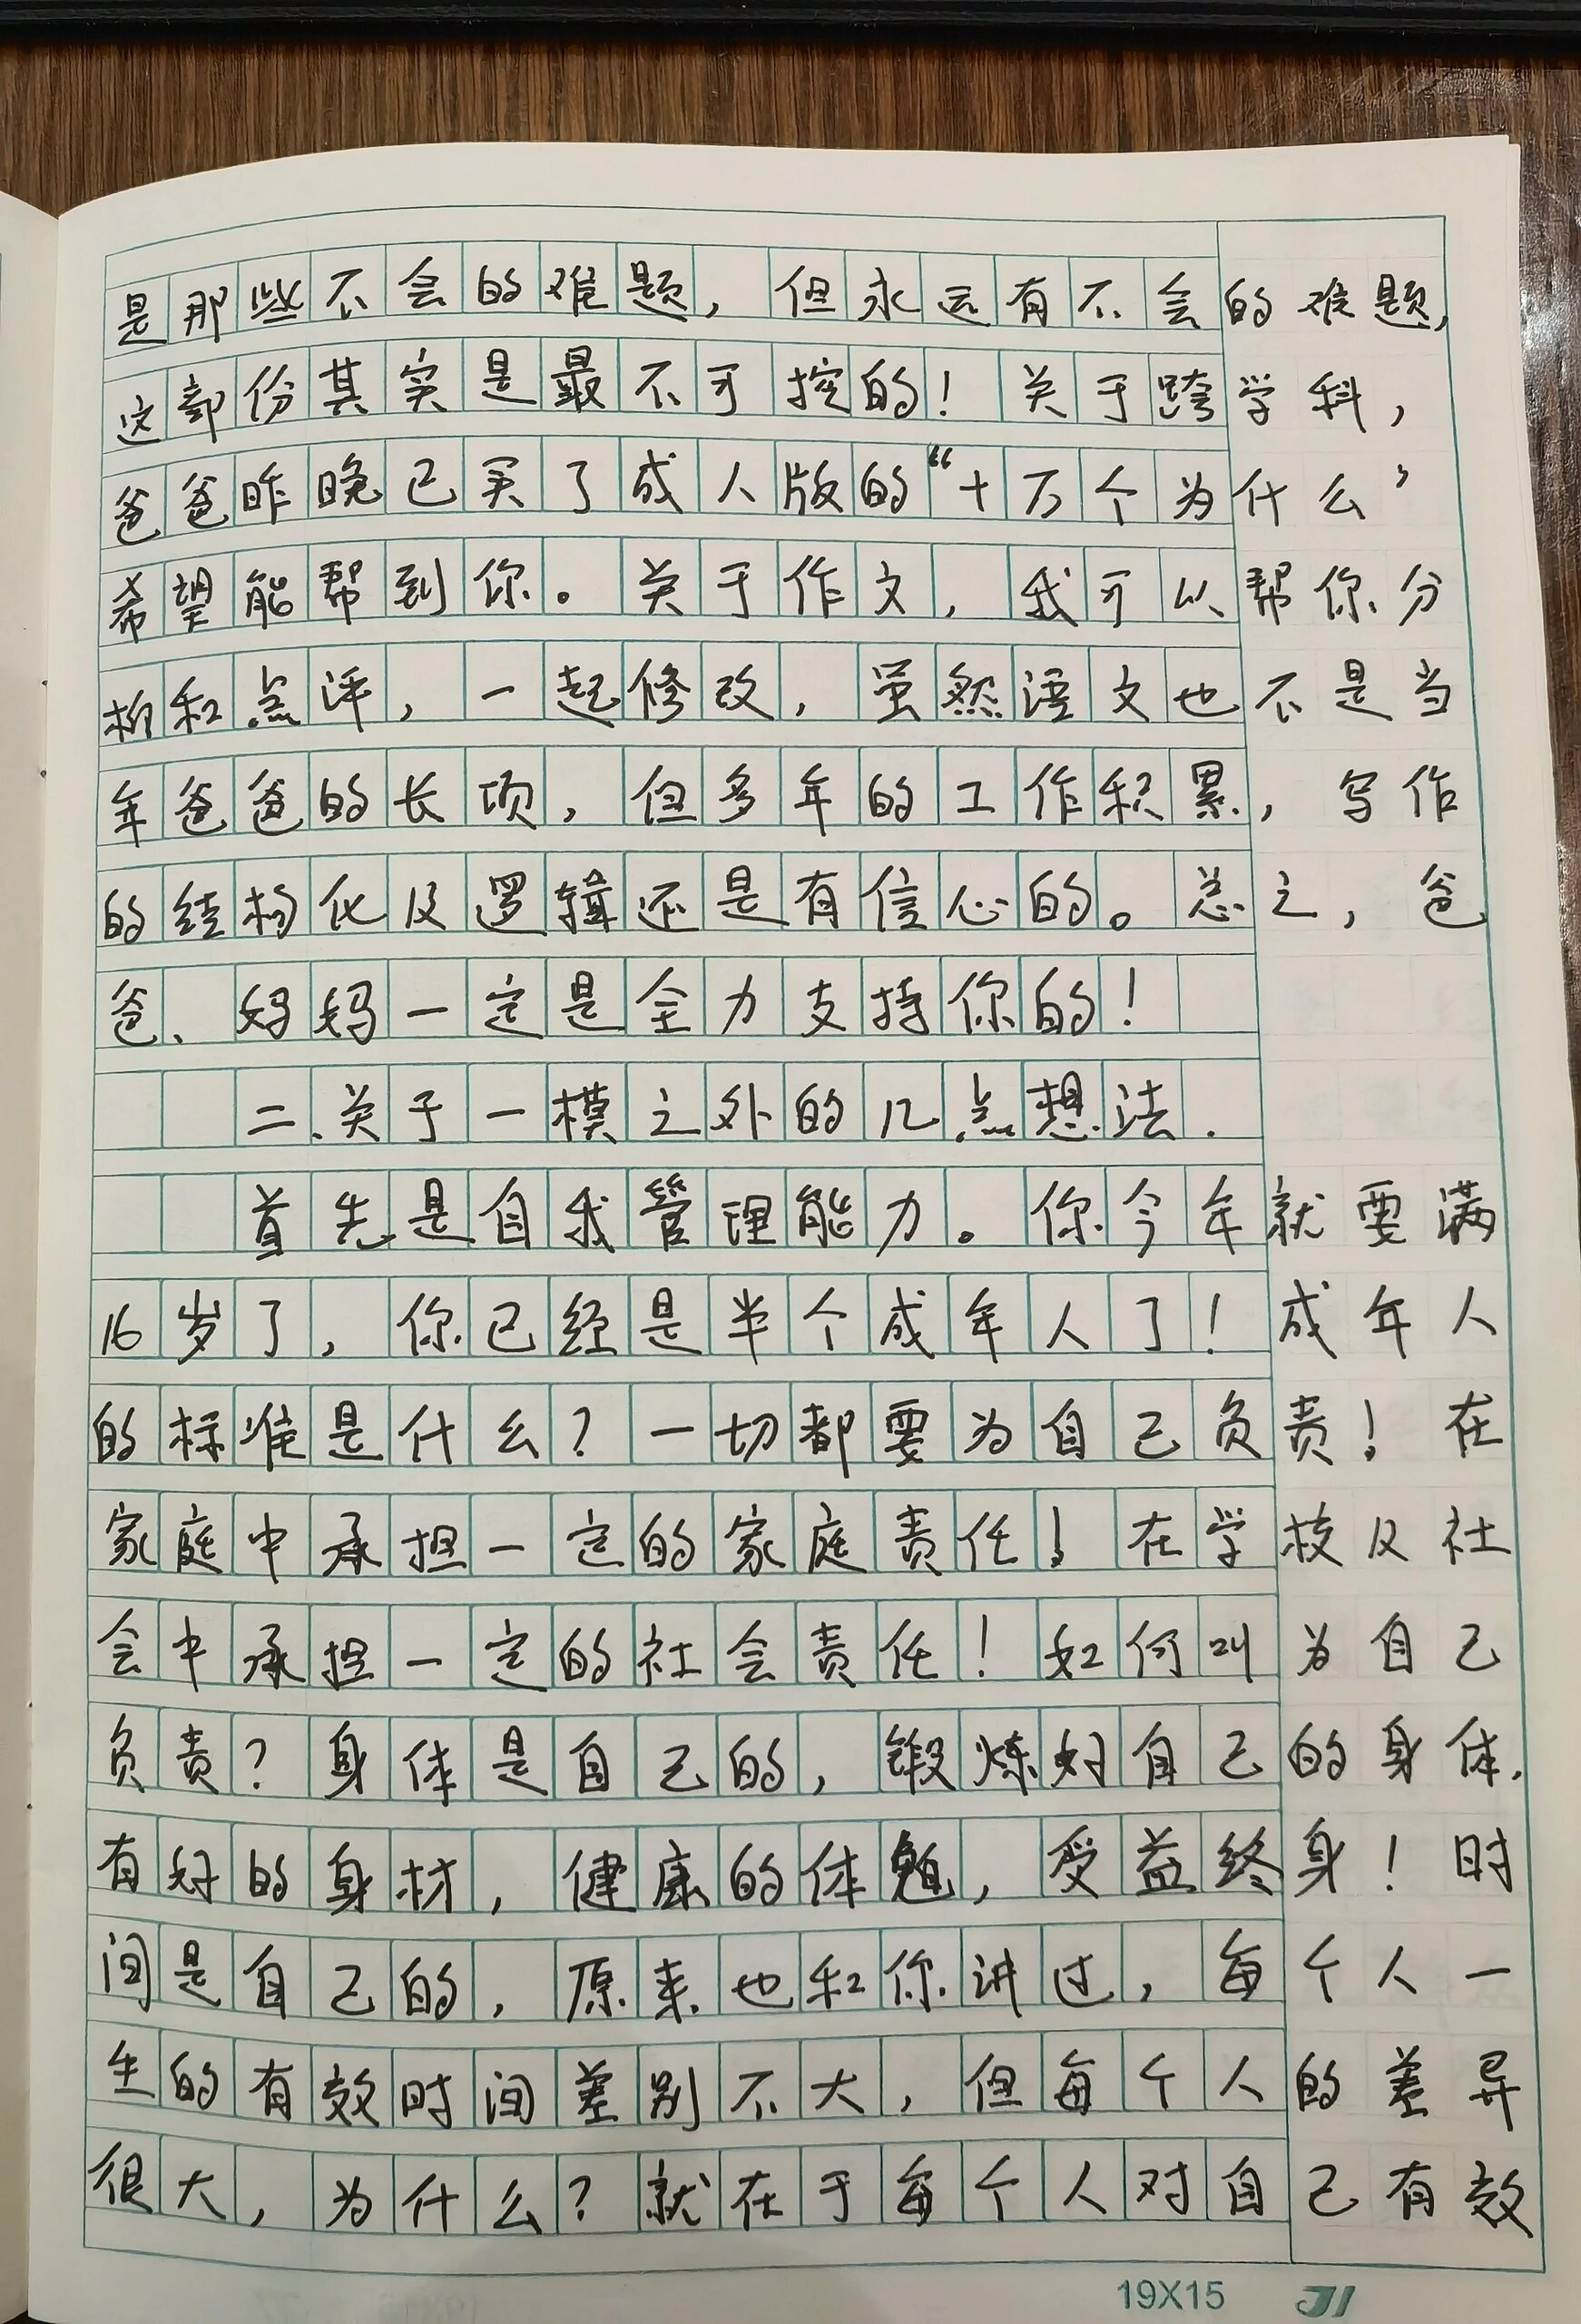 是那些不会的难题，但永远有不会的难题，
这部份其实是最不可控的！关于跨学科，
爸爸昨晚已买了成人版的“十万个为什么”
希望能帮到你。关于作文，我可以帮你分
析和点评，一起修改，虽然语文也不是当
年爸爸的长项，但多年的工作积累，写作
的结构化及逻辑还是有信心的。总之，爸
爸、妈妈一定是全力支持你的！
二、关于一模之外的几点想法.
首先是自我管理能力。你今年就要满
16岁了，你已经是半个成年人了！成年人
的标准是什么？一切都要为自己负责！在
家庭中承担一定的家庭责任！在学校及社
会中承担一定的社会责任！如何叫为自己
负责？身体是自己的，锻炼好自己的身体.
有好的身材，健康的体魄，受益终身！时
间是自己的，原来也和你讲过，每个人一
生的有效时间差别不大，但每个人的差异
很大，为什么？就在于每个人对自己有效
19X15 J1